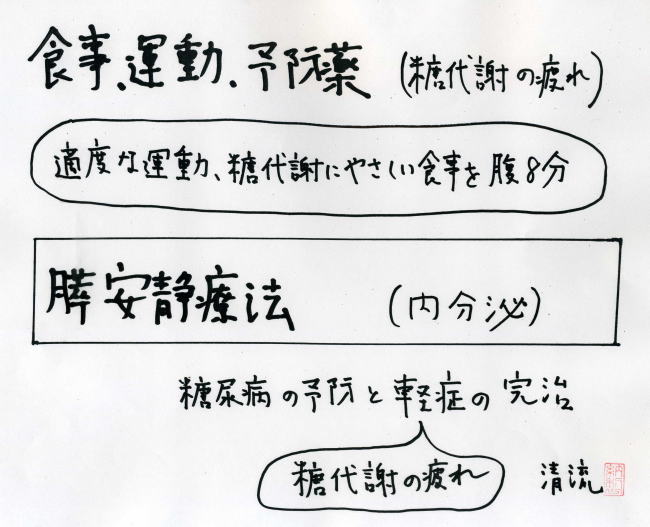 食事、運動、予防薬 (糖代謝の疲れ)
適度な運動、糖代謝にやさしい食事を腹8分
膵安静療法 (内分泌)
糖尿病の予防と軽症の完治
糖代謝の疲れ
清流